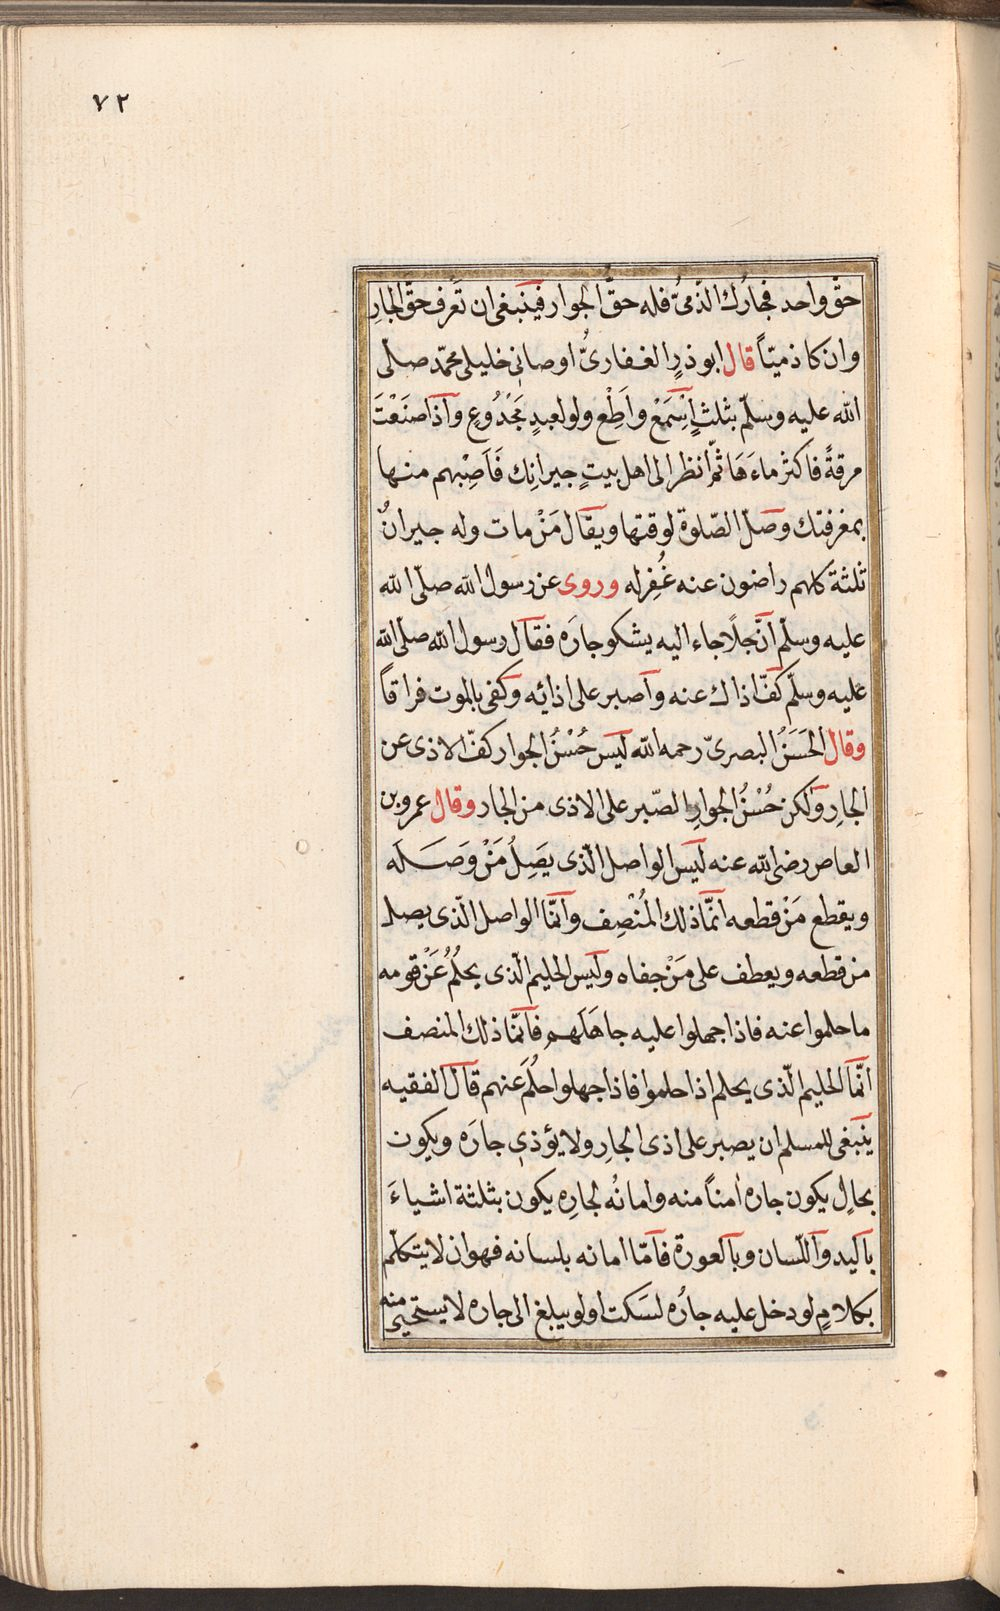 ٧٢
حقّ واحد فجارُك الذّمىُّ فله حقُّ الجوار فينبغى ان تَعرف حقَّ الجارِ
وان كا ذميّاً قال ابو ذرٍ الغفارىُّ اوصانى خليلى محمّد صلّى
الله عليه وسلّم بثلثٍ اِسْمَعْ واَطِعْ ولو لعبدٍ مَجْدُوعٍ واذا صنَعْتَ
مرقةً فاكثر ماءَهَا ثمّ انظر الى اهل بيتٍ جيرانِك فَاَصِبْهم منها
بمغرفتك وصلّ الصّلوة لوقتها ويقال مَنْ مات وله جيرانٌ
ثلثة كلهم راضون عنه غُفِر له وروى عن رسول الله صلّى الله
عليه وسلّم انّ جلًا جاء اليه يشكو جارَه فقال رسول الله صلّى الله
عليه وسلّم كفّ اذاك عنه واصبر على اذائه وكفى بالموت فراقاً
وقال الحَسَنُ البصرىّ رحمه الله ليس حُسْنُ الجوار كفّ الاذى عن
الجارِ ولٰكن حُسْنُ الجوارِ الصّبر على الاذى من الجار وقال عمرو بن
العاص رضى الله عنه ليس الواصل الّذى يَصِلُ مَنْ وَصَلَه
ويقطع مَنْ قطعه انّما ذلك المُنْصِف وانّما الواصل الّذى يصل
من قطعه ويعطف على مَنْ جفاه وليس الحليم الّذى يحلُمُ عَنْ قومه
ما حلموا عنه فاذا جهلوا عليه جاهَلَهم فانّما ذلك المنصف
انّما الحليم الّذى يحلم اذا حلموا فاذا جهلوا حلُمَ عنهم قال الفقيه
ينبغى للمسلم ان يصبر على اذى الجارِ ولا يؤذى جارَه ويكون
بحالٍ يكون جاره اٰمناً منه وامانُه لجارِه يكون بثلثة اشياءَ
باليد واللّسان وبالعورة فامّا امانه بلسانه فهو ان لا يتكلّم
بكلامٍ لو دخل عليه جارُه لسَكت او لو يبلغ الى جاره لا يستحيى منه